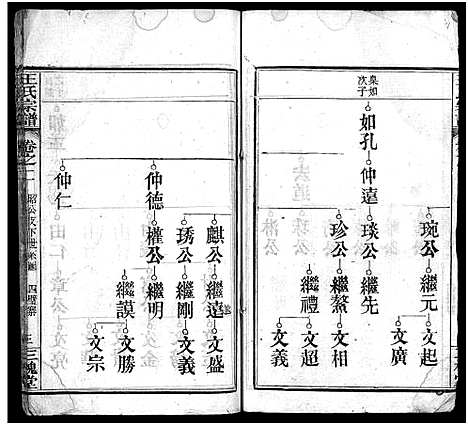 泉如
次子
如孔
仲遠
琬公
繼元
文起
文廣
琰公
繼先
珍公
繼鰲
文相
繼禮
文超
文義
王氏宗譜
卷之二
四壁寮
三槐堂
仲德
麒公
繼遠
文盛
琇公
繼剛
文義
權公
繼明
繼謨
文勝
文宗
仲仁